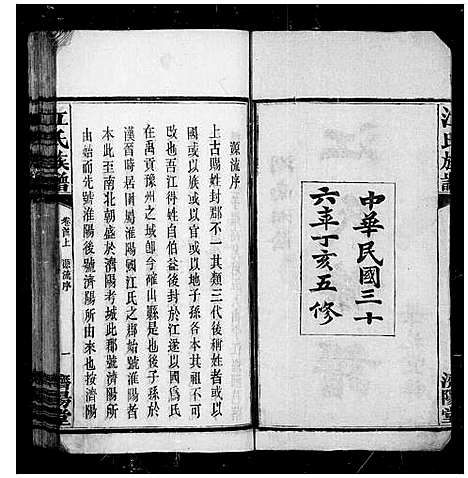 江氏族譜
濟陽堂
中華民國三十
六年丁亥五修
源流序
上古賜姓封郡不一其類三代後稱姓者或以
國或以族或以官或以地子孫各本其祖不可
改也吾江得姓自伯益後封於江遂以國爲氏
在禹貢豫州之域卽今確山縣是也後子孫於
漢晉時居國屬淮陽國江氏之郡始號淮陽郡
本此至南北朝盛於濟陽考城此郡號濟陽所
由始而先號淮陽後號濟陽所由來也按濟陽
江氏族譜
卷首上
源流序
一
濟陽堂